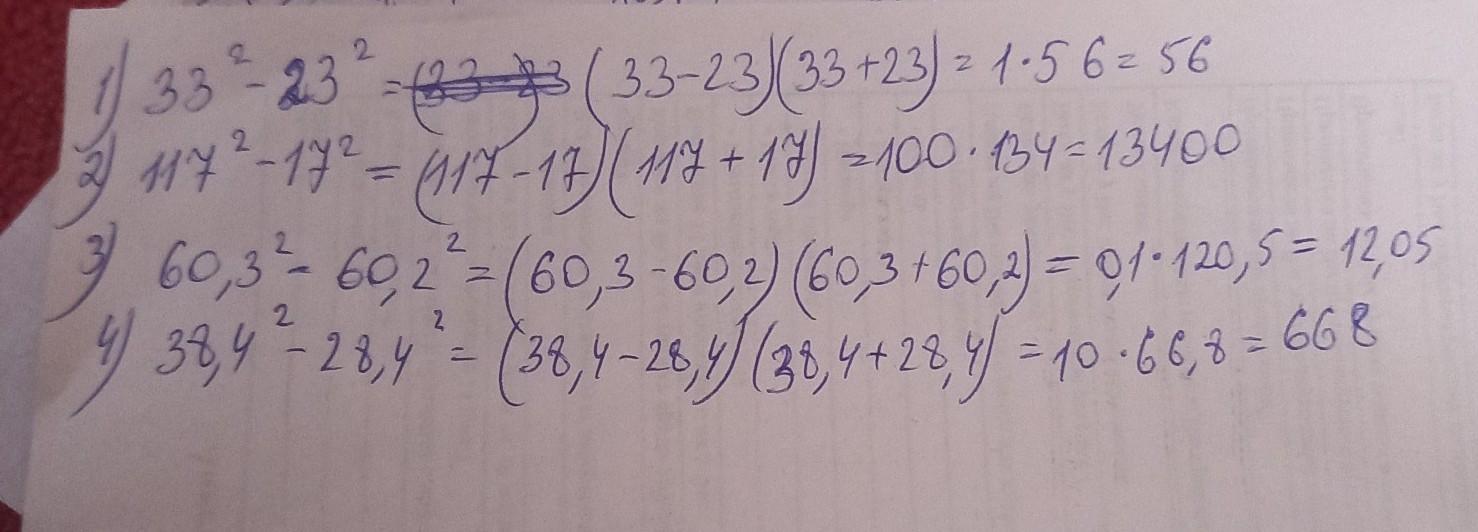 1) 33² - 23² = (33 - 23)(33 + 23) = 1 · 56 = 56
2) 117² - 17² = (117 - 17)(117 + 17) = 100 · 134 = 13400
3) 60,3² - 60,2² = (60,3 - 60,2)(60,3 + 60,2) = 0,1 · 120,5 = 12,05
4) 38,4² - 28,4² = (38,4 - 28,4)(38,4 + 28,4) = 10 · 66,8 = 668